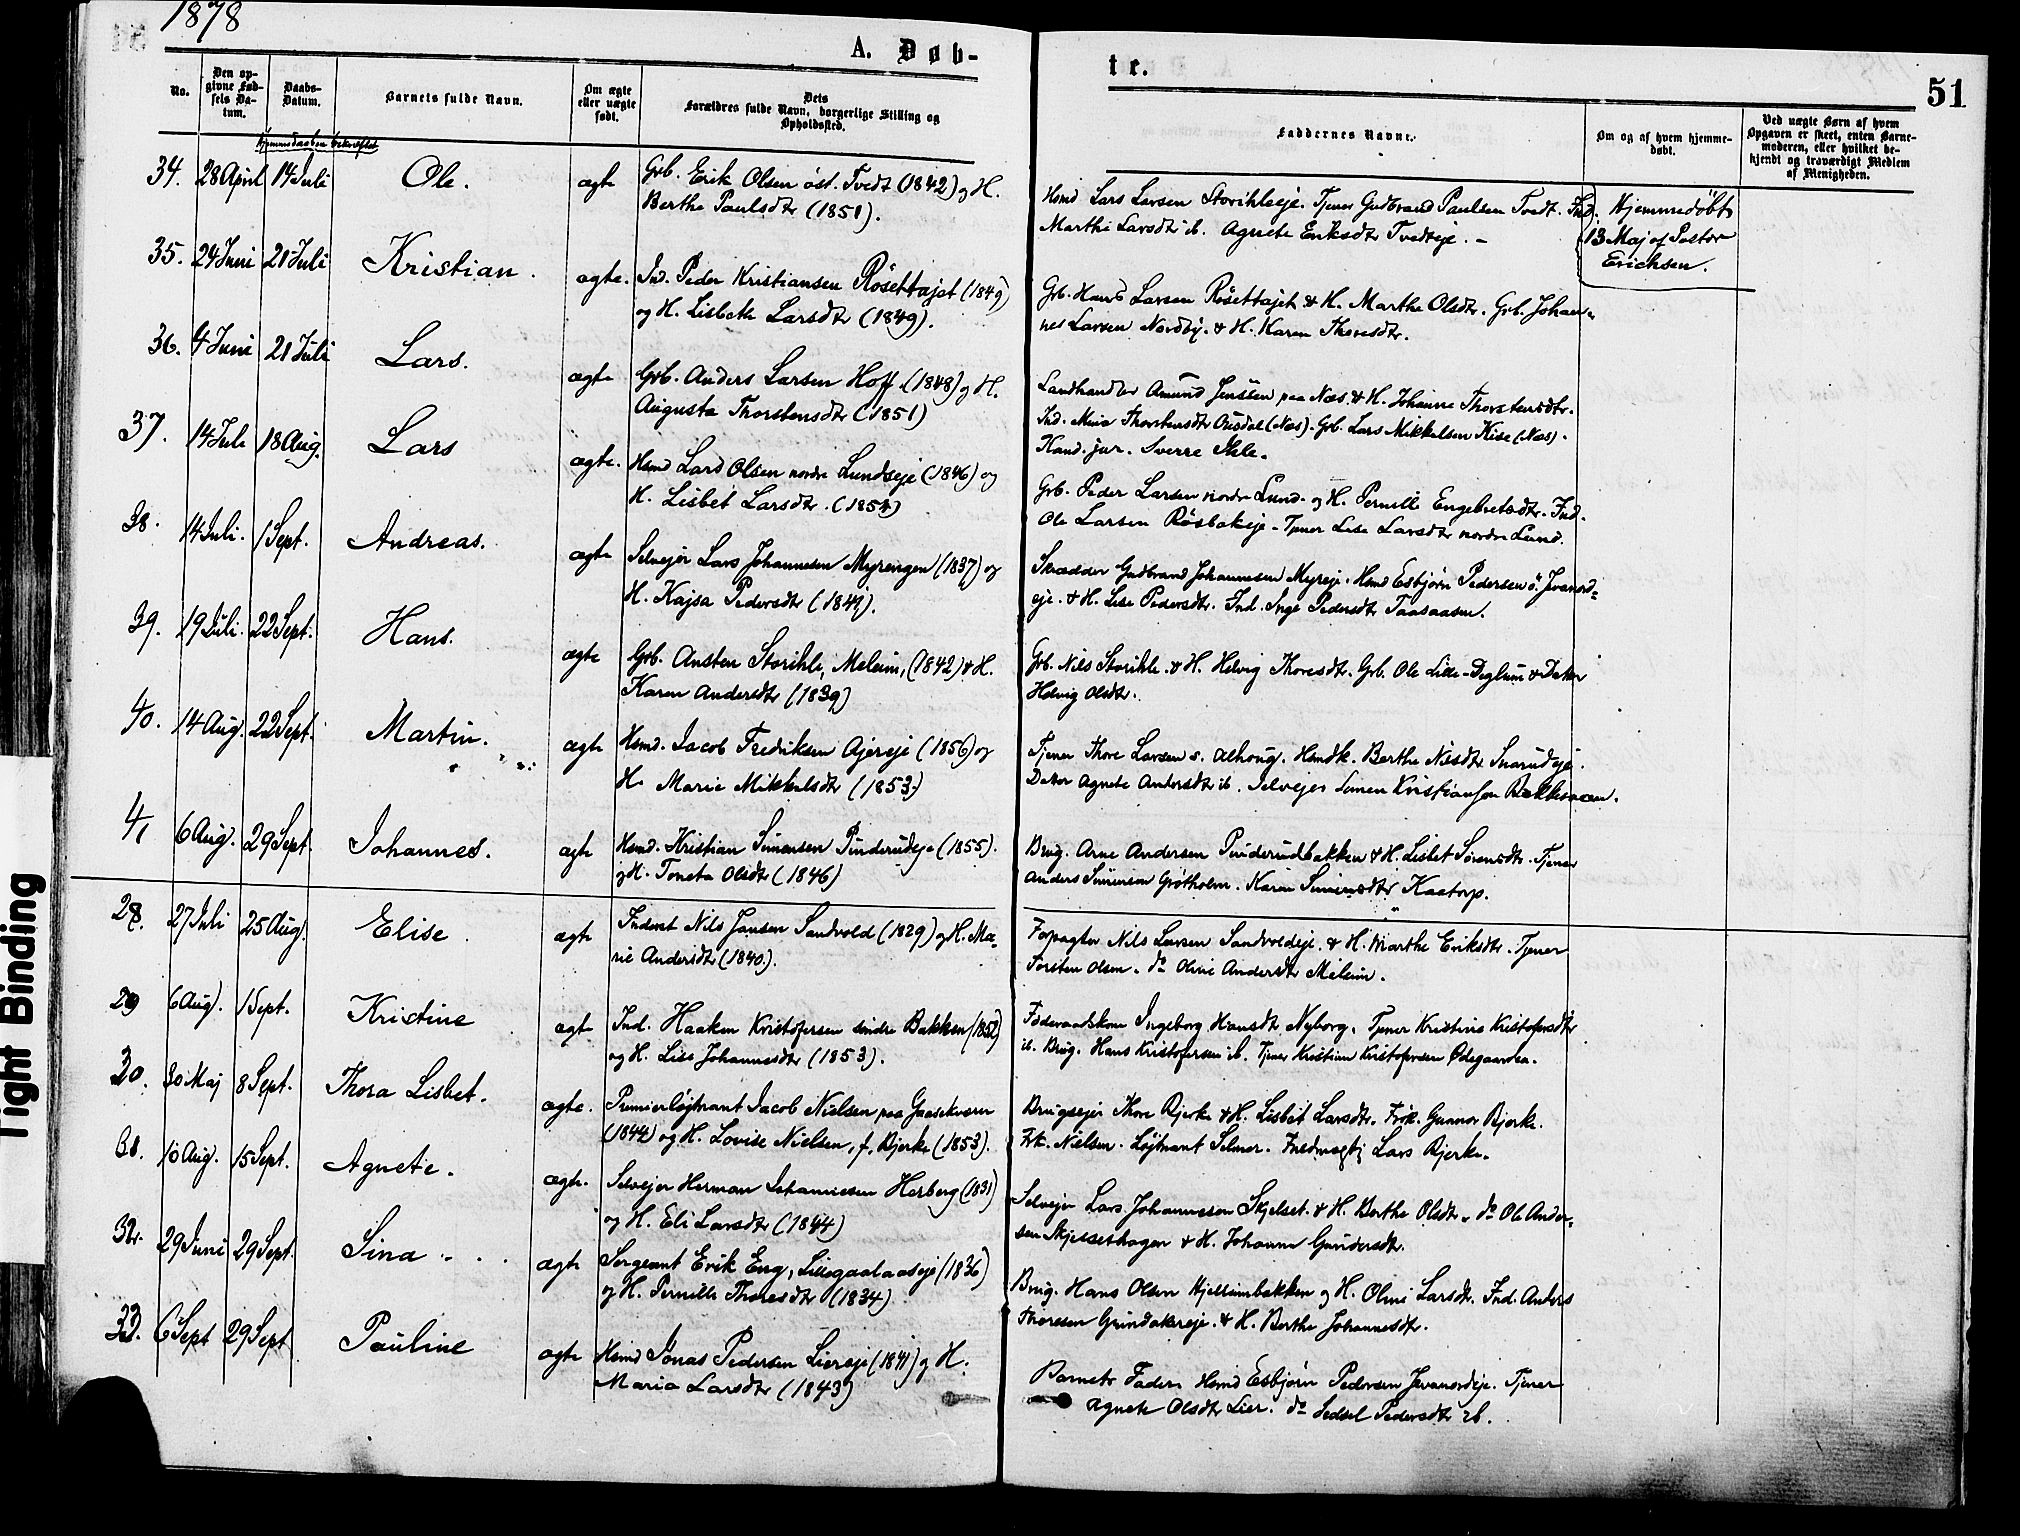 1878
A. Døb-
te.
51
No.
Den op-
givne Fød-
sels Da-
tum.
Daabs-
Datum.
Barnets fulde Navn.
Om ægte
eller uægte
født.
Dets
Forældres fulde Navn, borgerlige Stilling og
Opholdssted.
Faddernes Navne.
Om og af hvem hjemme-
døbt.
Ved uægte Børn af hvem
Opgaven er skeet, enten Barne-
moderen, eller hvilket be-
kjendt og troværdigt Medlem
af Menigheden.
Hjemmedaaben bekræftet
34. 28 April 14 Juli Ole. ægte Grb. Erik Olsen øst. Tvedt (1842) og H.
Berthe Paulsdtr (1851).
Hsmd Lars Larsen Storihleeje. Tjener Gudbrand Paulsen Tvedt. Ind.
Marthe Larsdtr ib. Agnete Eriksdtr Tvedteje. -
Hjemmedøbt
13 Maj af Pastor
Erichsen.
35. 24 Juni 21 Juli Kristian. ægte. Ind. Peder Kristiansen Røsettajet (1849)
og H. Lisbeth Larsdtr (1849).
Grb. Hans Larsen Røsettajet & H. Marthe Olsdtr. Grb. Johan-
nes Larsen Nordby. & H. Karen Thoresdtr.
36. 4 Juni 21 Juli Lars. ægte Grb. Anders Larsen Hoff. (1848) og H.
Augusta Thorstensdtr (1851)
Landhandler Amund Jenssen paa Næs. & H. Johanne Thorstensdtr.
Ind. Mina Thorstensdtr (Næs). Grb. Lars Mikkelsen Kise (Næs).
Kand. jur. Sverre Ihle.
37. 14 Juli 18 Aug. Lars ægte. Hsmd Lars Olsen nordre Lundseje (1846) og
H. Lisbet Larsdtr. (1854)
Grb. Peder Larsen nordre Lund. og H. Pernill Engebretsdtr. Ind.
Ole Larsen Røsbakeje. Tjener Lise Larsdtr nordre Lund.
38. 14 Juli. 1 Sept. Andreas. ægte Selvejer Lars Johannesen Myrengen (1837) og
H. Kajsa Pedersdtr (1841).
Skrædder Gudbrand Johannesen Myreje. Hsmd Esbjørn Pedersen ø. Jevanord-
eje. & H. Lise Pedersdtr. Ind. Inge Pedersdtr Taasaasen.
39. 19 Juli. 22 Sept. Hans. ægte Grb. Austen Storihle, Melum, (1842) & H.
Karen Andersdtr (1839)
Grb. Nils Storihle. & H. Helvig Thoresdtr. Grb. Ole Lille-Deglum & Datter
Helvig Olsdtr.
40. 14 Aug. 22 Sept. Martin. ægte Hsmd. Jacob Fredriksen Ajereje (1856) og
H. Marie Mikkelsdtr (1853.)
Tjener Thore Larsen s. Alhoug. Hsmdk. Berthe Nilsdtr Snarudeje.
Datter Agnete Andersdtr ib. Selvejer Simen Kristiansen
41 6 Aug. 29 Sept. Johannes. ægte Hsmd. Kristian Simensen Pinderudeje (1855).
og H. Toneta Olsdtr (1846)
Brug. Arne Andersen Pinderudbakken & H. Lisbet Sørensdtr. Tjener
Anders Simensen Grøtholm. Karen Simensdtr Kaatorp.
28. 27 Juli 25 Aug. Elise ægte Inderst Nils Jansen Sandvold (1829) og H. Ma-
rie Andersdtr (1840.).
Forpagter Nils Larsen Sandvoldeje. & H. Marthe Eriksdtr. Tjener
Torsten Olsen. do Oline Andersdtr Melum.
29 6 Aug. 1 Sept. Kristine ægte Ind. Haaken Kristofersen søndre Bakken (1852)
og H. Lise Johannesdtr (1853).
Føderaadskone Ingeborg Hansdtr Nyborg. Tjener Kristine Kristofersdtr
ib. Brug. Hans Kristofersen ib. Tjener Kristian Kristofersen Ødegaarden.
30. 30 Maj 8 Sept. Thora Lisbet. ægte. Premierløjtnant Jacob Nielsen paa
(1844) og H. Lovise Nielsen, f. Bjerke (1853).
Brugsejer Thore Bjerke & H. Lisbet Larsdtr. Frk. Gunvor Bjerke.
Frk. Nielsen. Løjtnant Selmer. Fuldmægtig Lars Bjerke.
31. 10 Aug. 15 Sept. Agnete. ægte. Selvejer Herman Johannesen Herberg (1831)
og H. Eli Larsdtr (1844)
Selvejer Lars Johannesen Skjelset. & H. Berthe Olsdtr. do Ole Ander-
sen Skjelsethagen & H. Johanne Gundersdtr.
32. 29 Juni 29 Sept. Sina ægte Sergeant Erik Eng, (1836)
og H. Pernille Thoresdtr (1834)
Brug. Hans Olsen Hjellumbakken og H. Oline Larsdtr. Ind. Anders
Thoresen Grindakereje. & H. Berthe Johannesdtr.
33. 6 Sept 29 Sept Pauline ægte Hsmd Jonas Pedersen Liereje (1841) og H.
Maria Larsdtr (1843)
Barnets Fader. Hsmd Esbjørn Pedersen Jevanordeje. Tjener
Agnete Olsdtr Lier. do Sedsel Pedersdtr ib.
Tight Binding